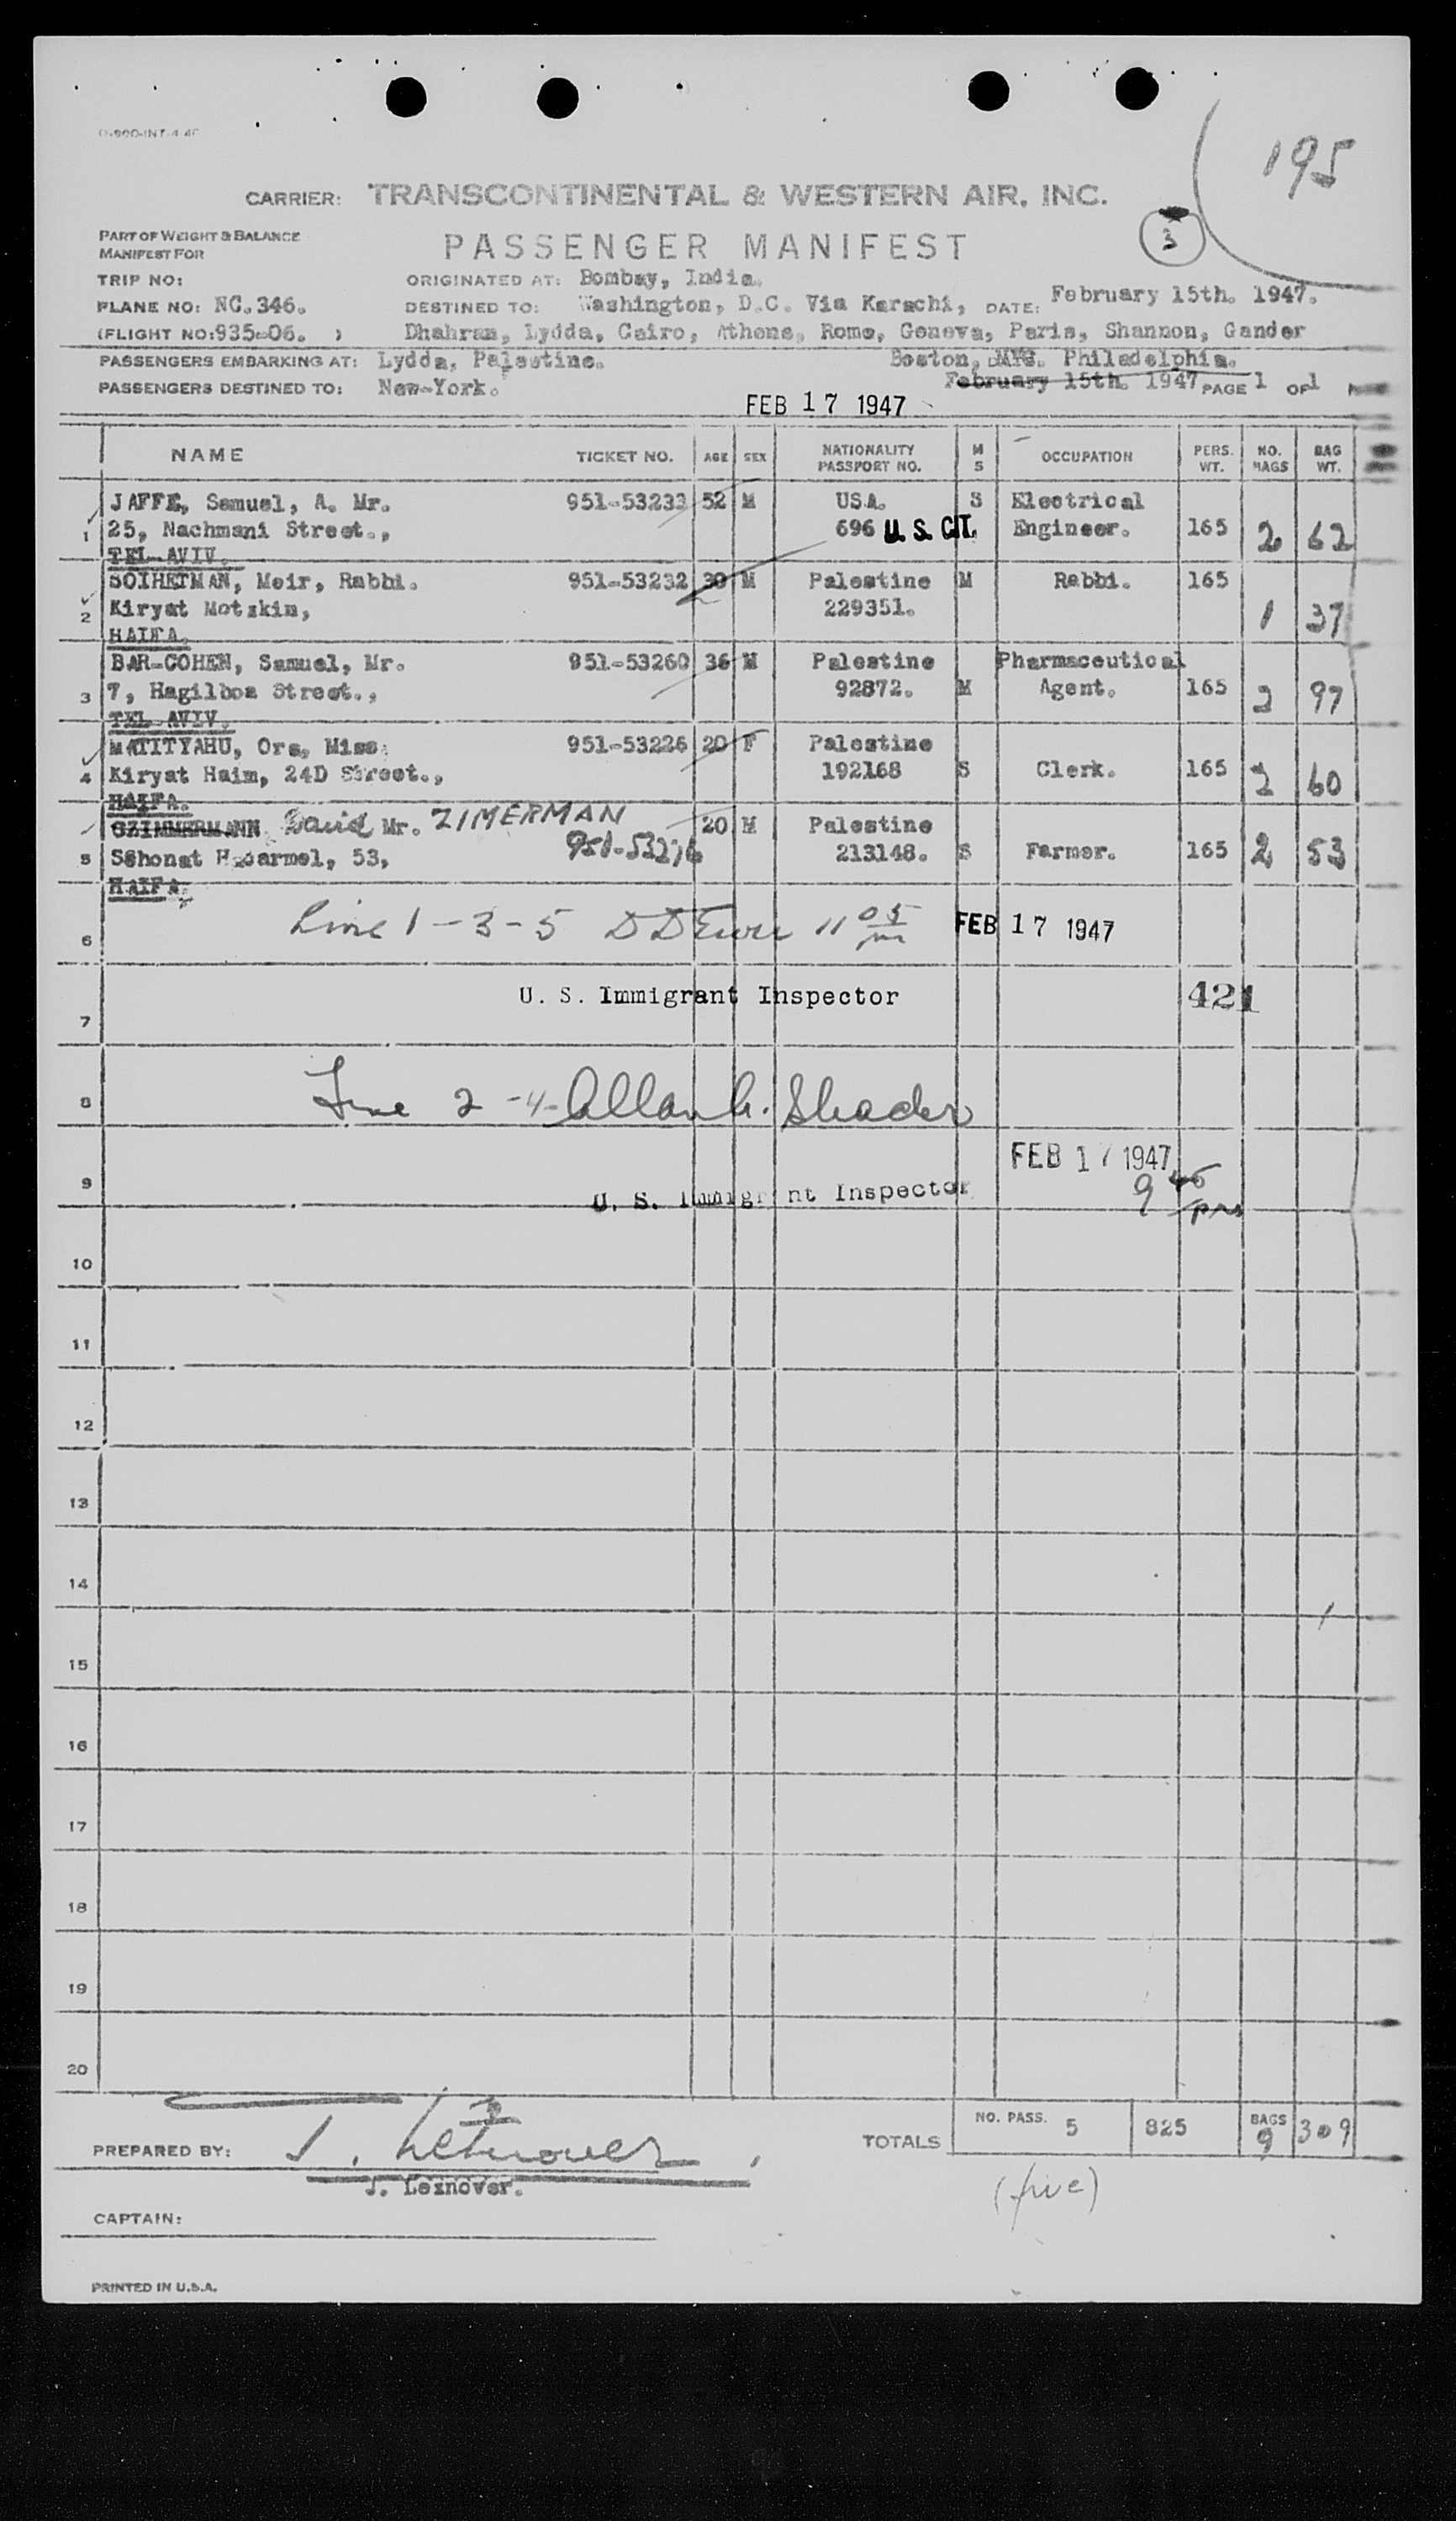 195
CARRIER: TRANSCONTINENTAL & WESTERN AIR, INC.
3
PART OF WEIGHT & BALANCE
MANIFEST FOR
PASSENGER MANIFEST
TRIP NO: ORIGINATED AT: Bombay, India.
PLANE NO: NC.346. DESTINED TO: Washington, D.C. Via Karachi, DATE: February 15th. 1947.
(FLIGHT NO:935-06. ) Dhahran, Lydda, Cairo, Athens, Rome, Geneva, Paris, Shannon, Gander
PASSENGERS EMBARKING AT: Lydda, Palestine. Boston, Philadelphia.
PASSENGERS DESTINED TO: New-York. February 15th. 1947 PAGE 1 OF 1
FEB 17 1947
NAME TICKET NO. AGE SEX NATIONALITY PASSPORT NO. M S OCCUPATION PERS. WT. NO. BAGS BAG WT.
JAFFE, Samuel, A. Mr. 951-53233 52 M USA. S Electrical
1 25, Nachmani Street., 696 U.S. CIT. Engineer. 165 2 62
TEL-AVIV.
SOIHETMAN, Meir, Rabbi. 951-53232 30 M Palestine M Rabbi. 165
2 Kiryat Motzkin, 229351. 1 37
HAIFA.
BAR-COHEN, Samuel, Mr. 951-53260 36 M Palestine Pharmaceutical
3 7, Hagilboa Street., 92872. M Agent. 165 2 97
TEL-AVIV.
MATITYAHU, Ora, Miss. 951-53226 20 F Palestine
4 Kiryat Haim, 24D Street., 192168 S Clerk. 165 2 60
HAIFA.
David Mr. ZIMERMAN 20 M Palestine
951-53276
5 Sshonat Hacarmel, 53, 213148. S Farmer. 165 2 53
HAIFA.
Line 1-3-5 11 05 FEB 17 1947
6
U. S. Immigrant Inspector 421
7
8 Line 2-4- Allan G. Shader
FEB 17 1947
9 U. S. Immigrant Inspector 9 45 pm
10
11
12
13
14
15
16
17
18
19
20
PREPARED BY: TOTALS NO. PASS. 5 825 BAGS 9 309
J. Leznover.
(five)
CAPTAIN:
PRINTED IN U.S.A.